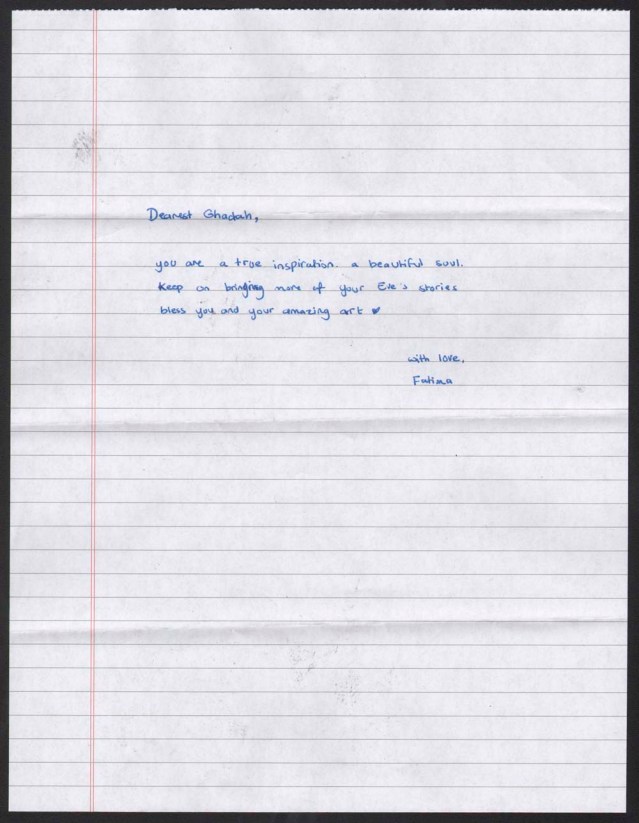 Dearest Ghadah,
you are a true inspiration. a beautiful soul.
Keep on bringing more of your Eve's stories
bless you and your amazing art ♥
with love,
Fatima